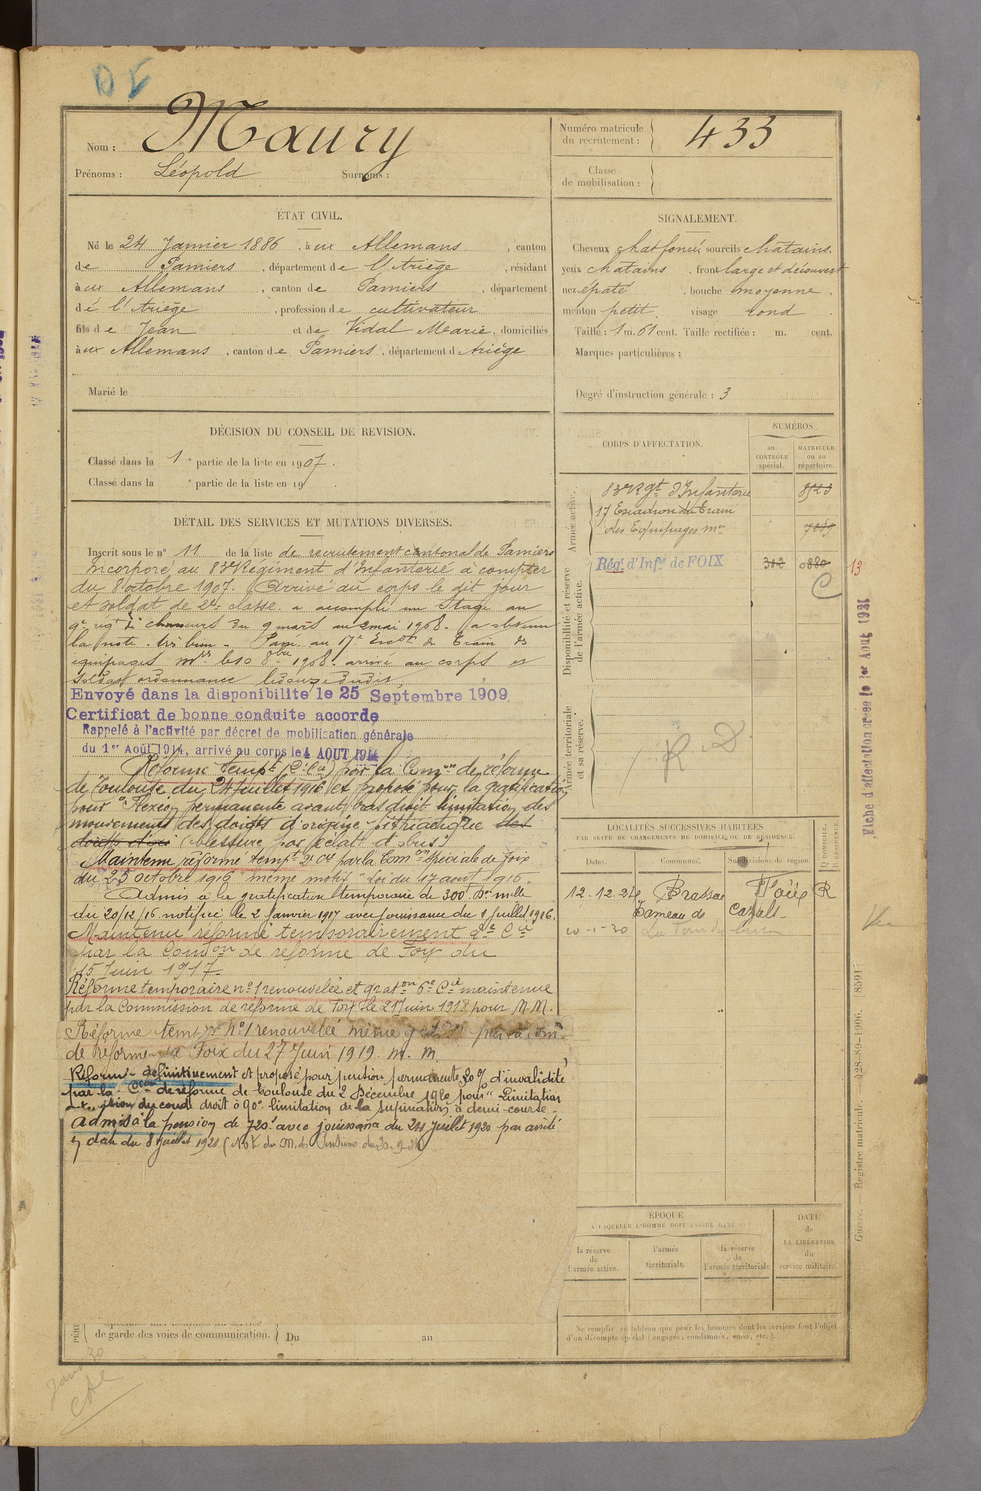 Nom : Maury
Prénoms : Léopold Surnoms :
Numéro matricule
du recrutement : 433
Classe
de mobilisation :
ÉTAT CIVIL.
Né le 24 Janvier 1886, à ux Allemans, canton
de Pamiers, département de l'Ariège, résidant
à ux Allemans, canton de Pamiers, département
de l'Ariège, profession de cultivateur
fils de Jean et de Vidal Marie, domiciliés
à ux Allemans, canton de Pamiers, département d'Ariège
Marié le
SIGNALEMENT.
Cheveux chat foncé, sourcils chatains.
yeux chatains, front large et découvert
nez épaté, bouche moyenne.
menton petit visage rond
Taille : 1 m. 61 cent. Taille rectifiée : m. cent.
Marques particulières :
Degré d'instruction générale : 3
DÉCISION DU CONSEIL DE REVISION.
Classé dans la 1e partie de la liste en 1907.
Classé dans la e partie de la liste en 19
DÉTAIL DES SERVICES ET MUTATIONS DIVERSES.
Inscrit sous le n° 11 de la liste de recrutement cantonal de Pamiers
Incorporé au 83e Régiment d'Infanterie à compter
du 8 octobre 1907. Arrivé au corps le dit jour
et soldat de 2e classe. a accompli un Stage au
9e regt de chasseurs du 9 mars au 2 mai 1908. (a obtenu
la note très bien. Passé au 17e Escon du Train des
équipages mres le 10 8bre 1908. arrivé au corps et
soldat ordonnance le
Envoyé dans la disponibilité le 25 Septembre 1909
Certificat de bonne conduite accordé
Rappelé à l'activité par décret de mobilisation générale
du 1er Août 1914, arrivé au corps le 4 AOUT 1914
Réformé tempt (2e Cie) par la Comon de réforme
de Toulouse du 24 Juillet 1916 et proposé pour la gratification
pour flexion permanente avant bras droit limitation des
mouvements des doigts d'origine
(blessure par éclat d'obus)
Maintenu réformé tempt 2e Cie par la Comon Spéciale de Foix
du 23 octobre 1916 "même motif" Loi du 17 août 1915.
Admis à la gratification temporaire de 300f Don mlle
du 20/12/16 notifié le 2 Janvier 1917 avec jouissance du 1 juillet 1916.
Maintenu réformé temporairement 2e Cie
par la Comon de réforme de Foix du
15 Juin 1917
Réforme temporaire n° 1 renouvelée et graton 6e Cie maintenue
par la Commission de réforme de Foix le 21 Juin 1918 pour M.M.
Réforme tempre N° 1 renouvelée même par la Comon
de réforme de Foix du 27 Juin 1919. M. M.
Réformé définitivement et proposé pour pension permanente 30 % d'invalidité
par la Comon de réforme de Toulouse du 2 Décembre 1920 pour "Limitation
du coude droit à 90° limitation de la supination à demi-course.
Admis à la pension de 720f avec jouissance du 24 juillet 1920 par arrêté
en date du 8 juillet 1921
de garde des voies de communication. Du au
CORPS D'AFFECTATION.
NUMÉROS
au
CONTRÔLE
spécial.
MATRICULE
ou au
répertoire.
Armée active.
83e Rgt d'Infanterie 8523
17 Escadron du Train
des Equipages mres
Disponibilité et réserve
de l'armée active.
Rég. d'Infie de FOIX 312 0880 13
C
Armée territoriale
et sa réserve.
R D
LOCALITÉS SUCCESSIVES HABITÉES
PAR SUITE DE CHANGEMENTS DE DOMICILE OU DE RÉSIDENCE.
Dates. Communes. Subdivisions de région. D DOMICILE. R RÉSIDENCE.
12.12.24 Brassac Foix R
hameau de Cazals
20-1-30
ÉPOQUE
À LAQUELLE L'HOMME DOIT PASSER DANS
la réserve
de
l'armée active.
l'armée
territoriale.
la réserve
de
l'armée territoriale
DATE
de
LA LIBÉRATION
du
service militaire.
Ne remplir ce tableau que pour les hommes dont les services font l'objet
d'un décompte spécial (engagés, condamnés, omis, etc.).
Fiche d'affectation créée le 1er Août 1921
Registre matricule. 928-89-1906. [8591]